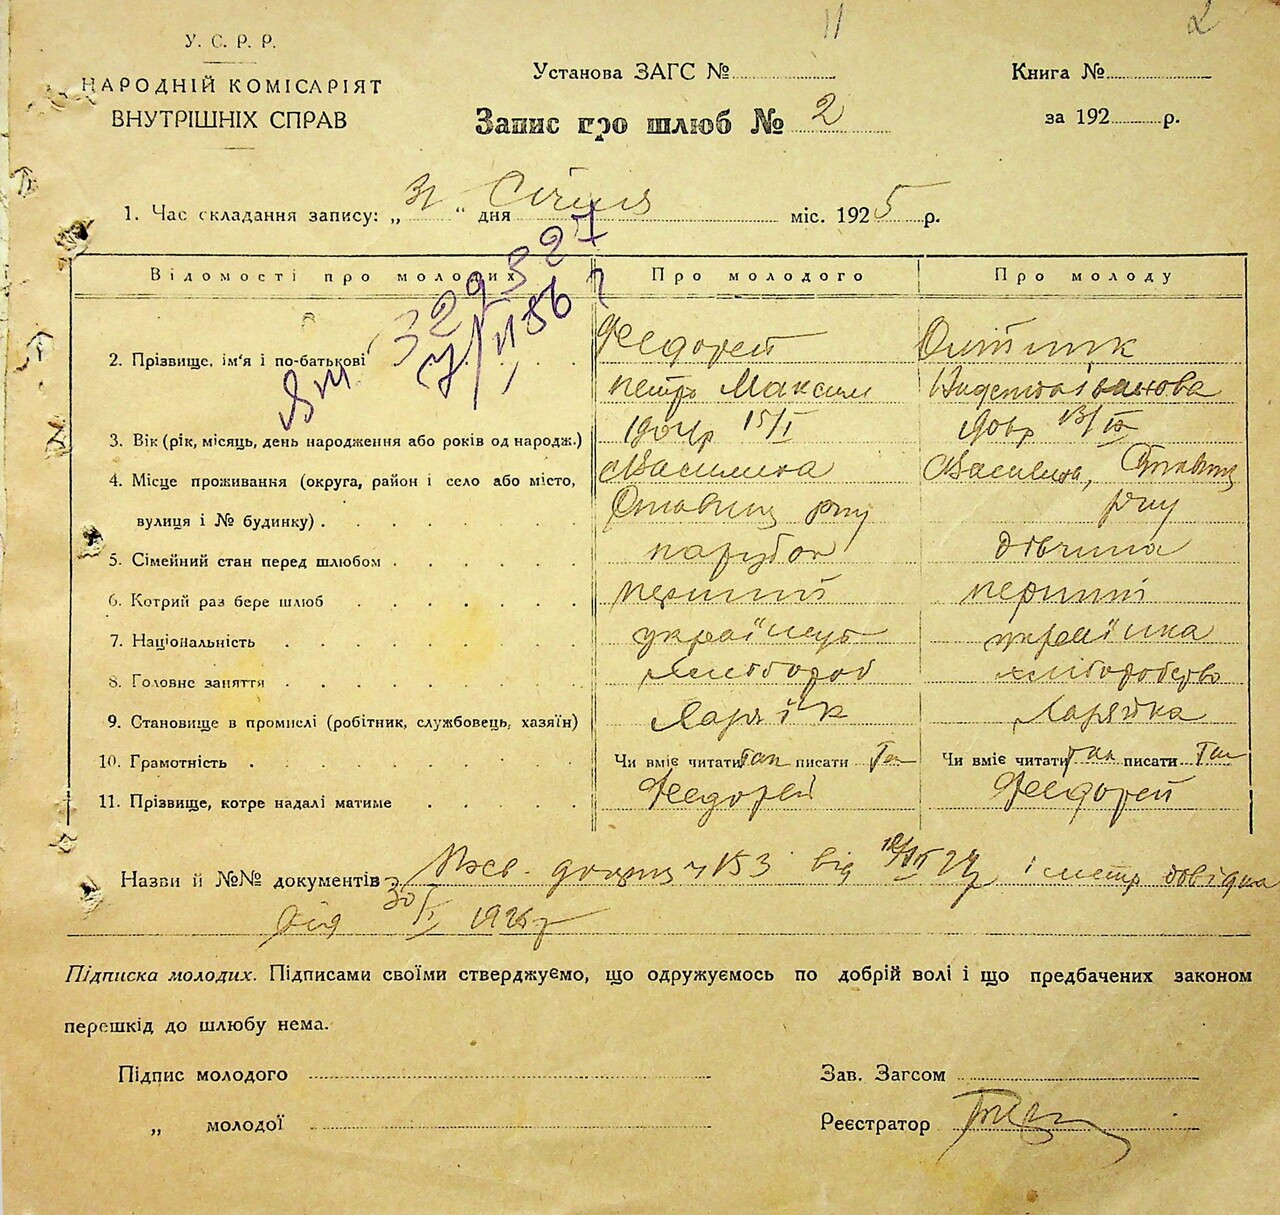 11
2
У. С. Р. Р.
НАРОДНІЙ КОМІСАРІЯТ
ВНУТРІШНІХ СПРАВ
Установа ЗАГС №
Книга №
Запис про шлюб № 2
за 192 р.
1. Час складання запису: „31“ дня Січня міс. 1925 р.
329527
Відомості про молодих
Про молодого
Про молоду
2. Прізвище, ім'я і по-батькові
Федорей
Петро Максим
Олійник
3. Вік (рік, місяць, день народження або років од народж.)
15/I
13/IX
4. Місце проживання (округа, район і село або місто,
вулиця і № будинку)
Василина
Василина,
5. Сімейний стан перед шлюбом
парубок
дівчина
6. Котрий раз бере шлюб
перший
перший
7. Національність
українець
українка
8. Головне заняття
хлібороб
хліборобство
9. Становище в промислі (робітник, службовець, хазяїн)
10. Грамотність
Чи вміє читати так писати Так
Чи вміє читати так писати Так
11. Прізвище, котре надалі матиме
Федорей
Федорей
Назви й №№ документів
153 від і метр довідка
від 30/I 1925р
Підписка молодих. Підписами своїми стверджуємо, що одружуємось по добрій волі і що предбачених законом
перешкід до шлюбу нема.
Підпис молодого
Зав. Загсом
„ молодої
Реєстратор